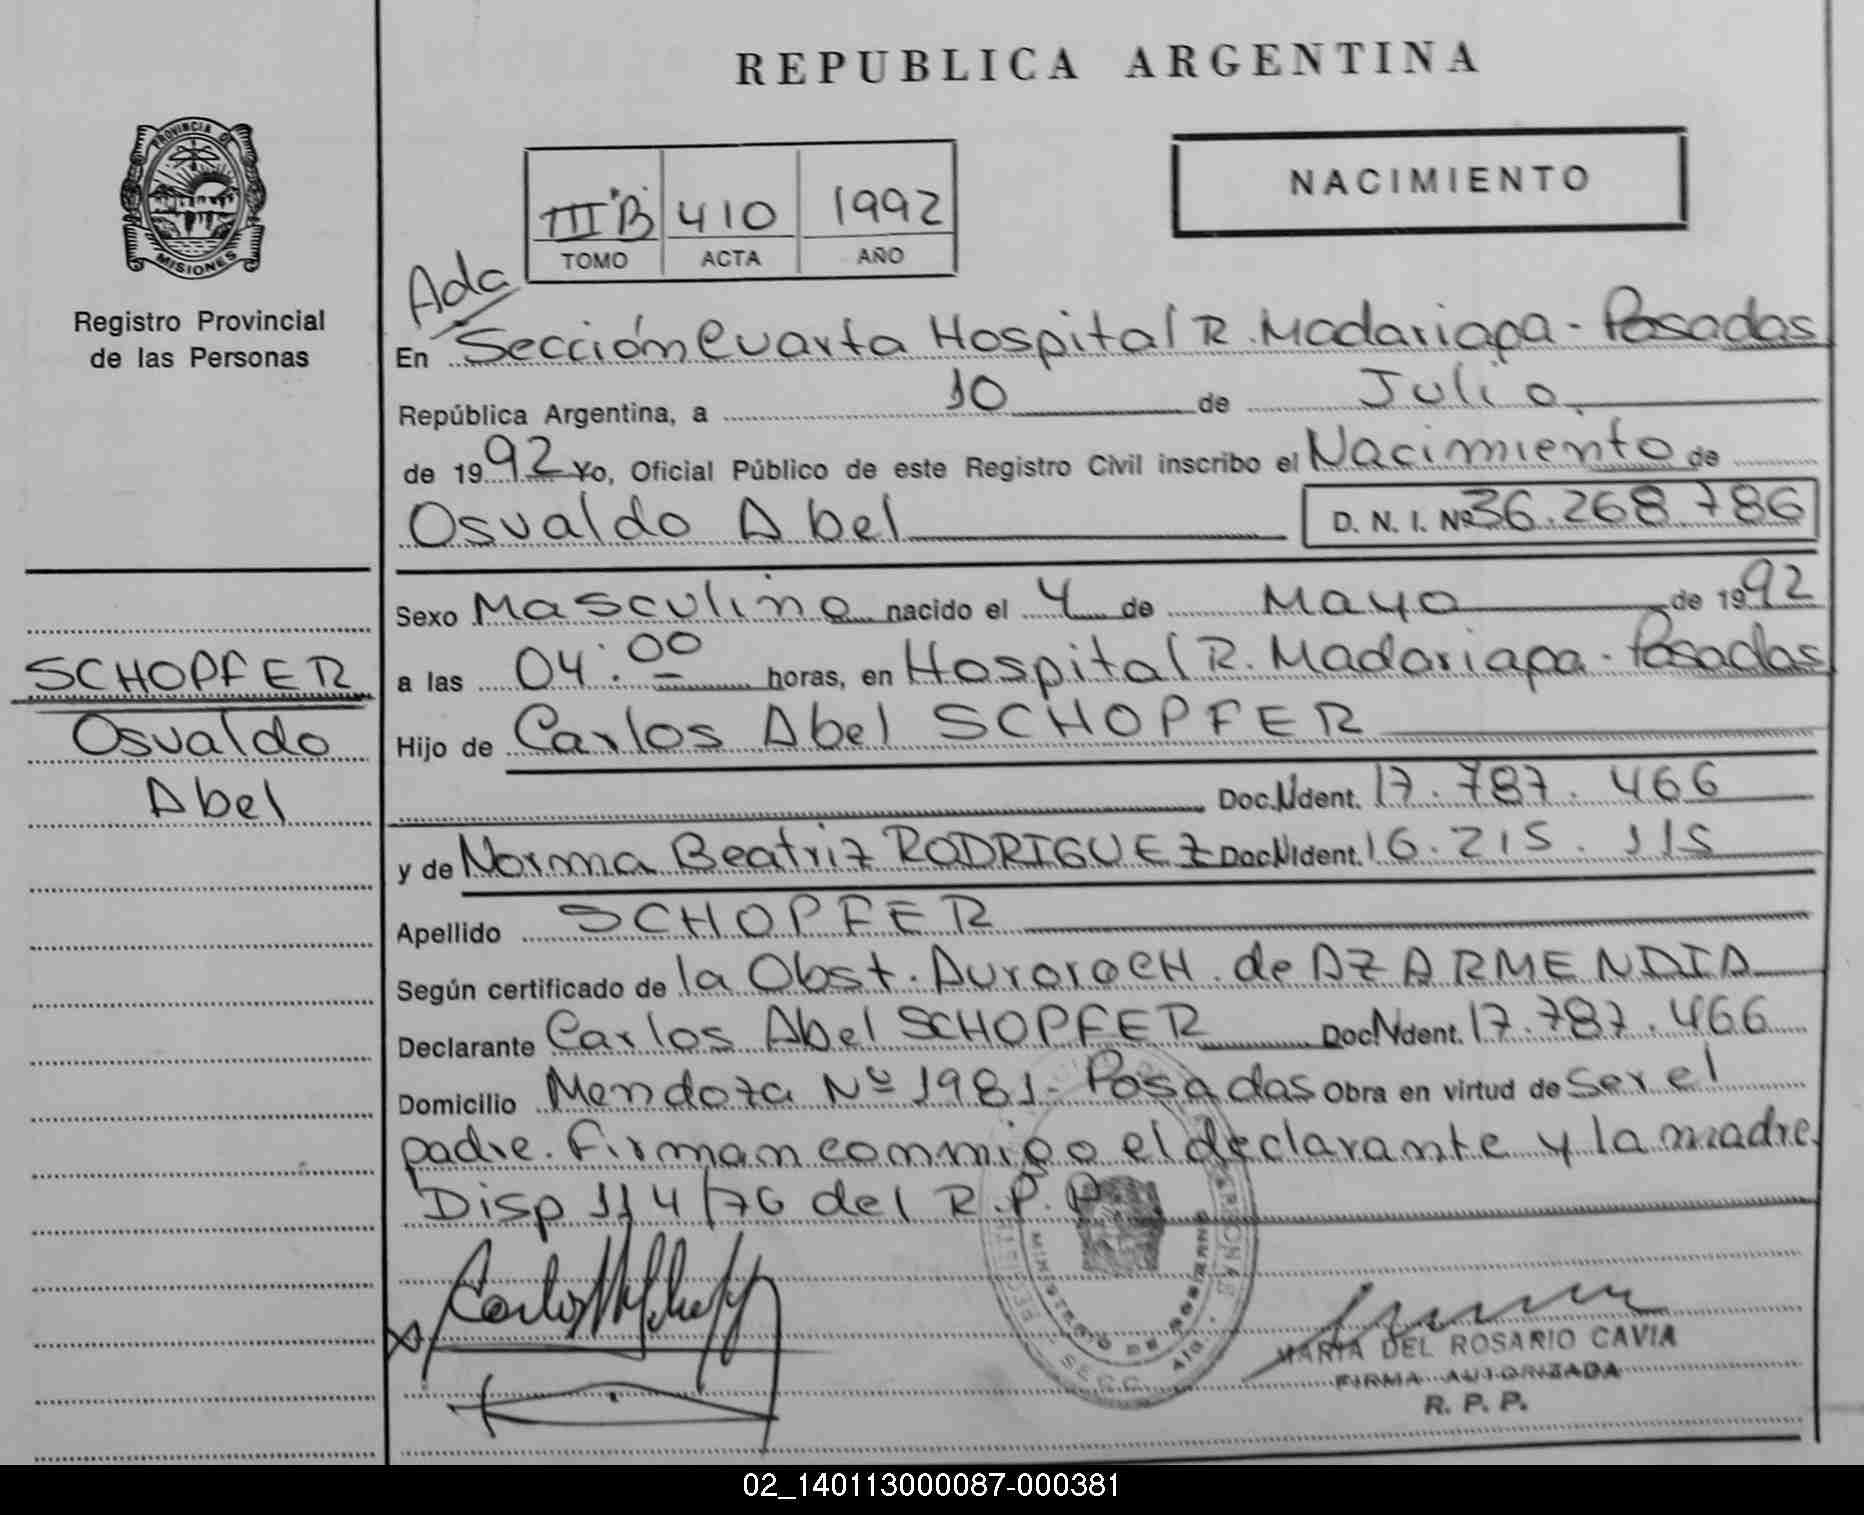 REPUBLICA ARGENTINA
PROVINCIA DE
MISIONES
Registro Provincial
de las Personas
NACIMIENTO
III B 410 1992
TOMO ACTA AÑO
Ada
En Sección Cuarta Hospital R. Madariaga - Posadas
República Argentina, a 10 de Julio
de 1992 Yo, Oficial Público de este Registro Civil inscribo el Nacimiento de
Osvaldo Abel D. N. I. Nº 36.268.786
Sexo Masculino nacido el 4 de Mayo de 1992
a las 04:00 horas, en Hospital R. Madariaga - Posadas
SCHOPFER
Osvaldo
Abel
Hijo de Carlos Abel SCHOPFER
Doc. N Ident. 17.787.466
y de Norma Beatriz RODRIGUEZ Doc N Ident. 16.215.115
Apellido SCHOPFER
Según certificado de la Obst. Aurora CH. de AZARMENDIA
Declarante Carlos Abel SCHOPFER Doc. N Ident. 17.787.466
Domicilio Mendoza Nº 1981 - Posadas Obra en virtud de Ser el
padre. Firman conmigo el declarante y la madre.
Disp 114/76 del R.P.P
MINISTERIO DE GOBIERNO
MARIA DEL ROSARIO CAVIA
FIRMA AUTORIZADA
R. P. P.
02_140113000087-000381